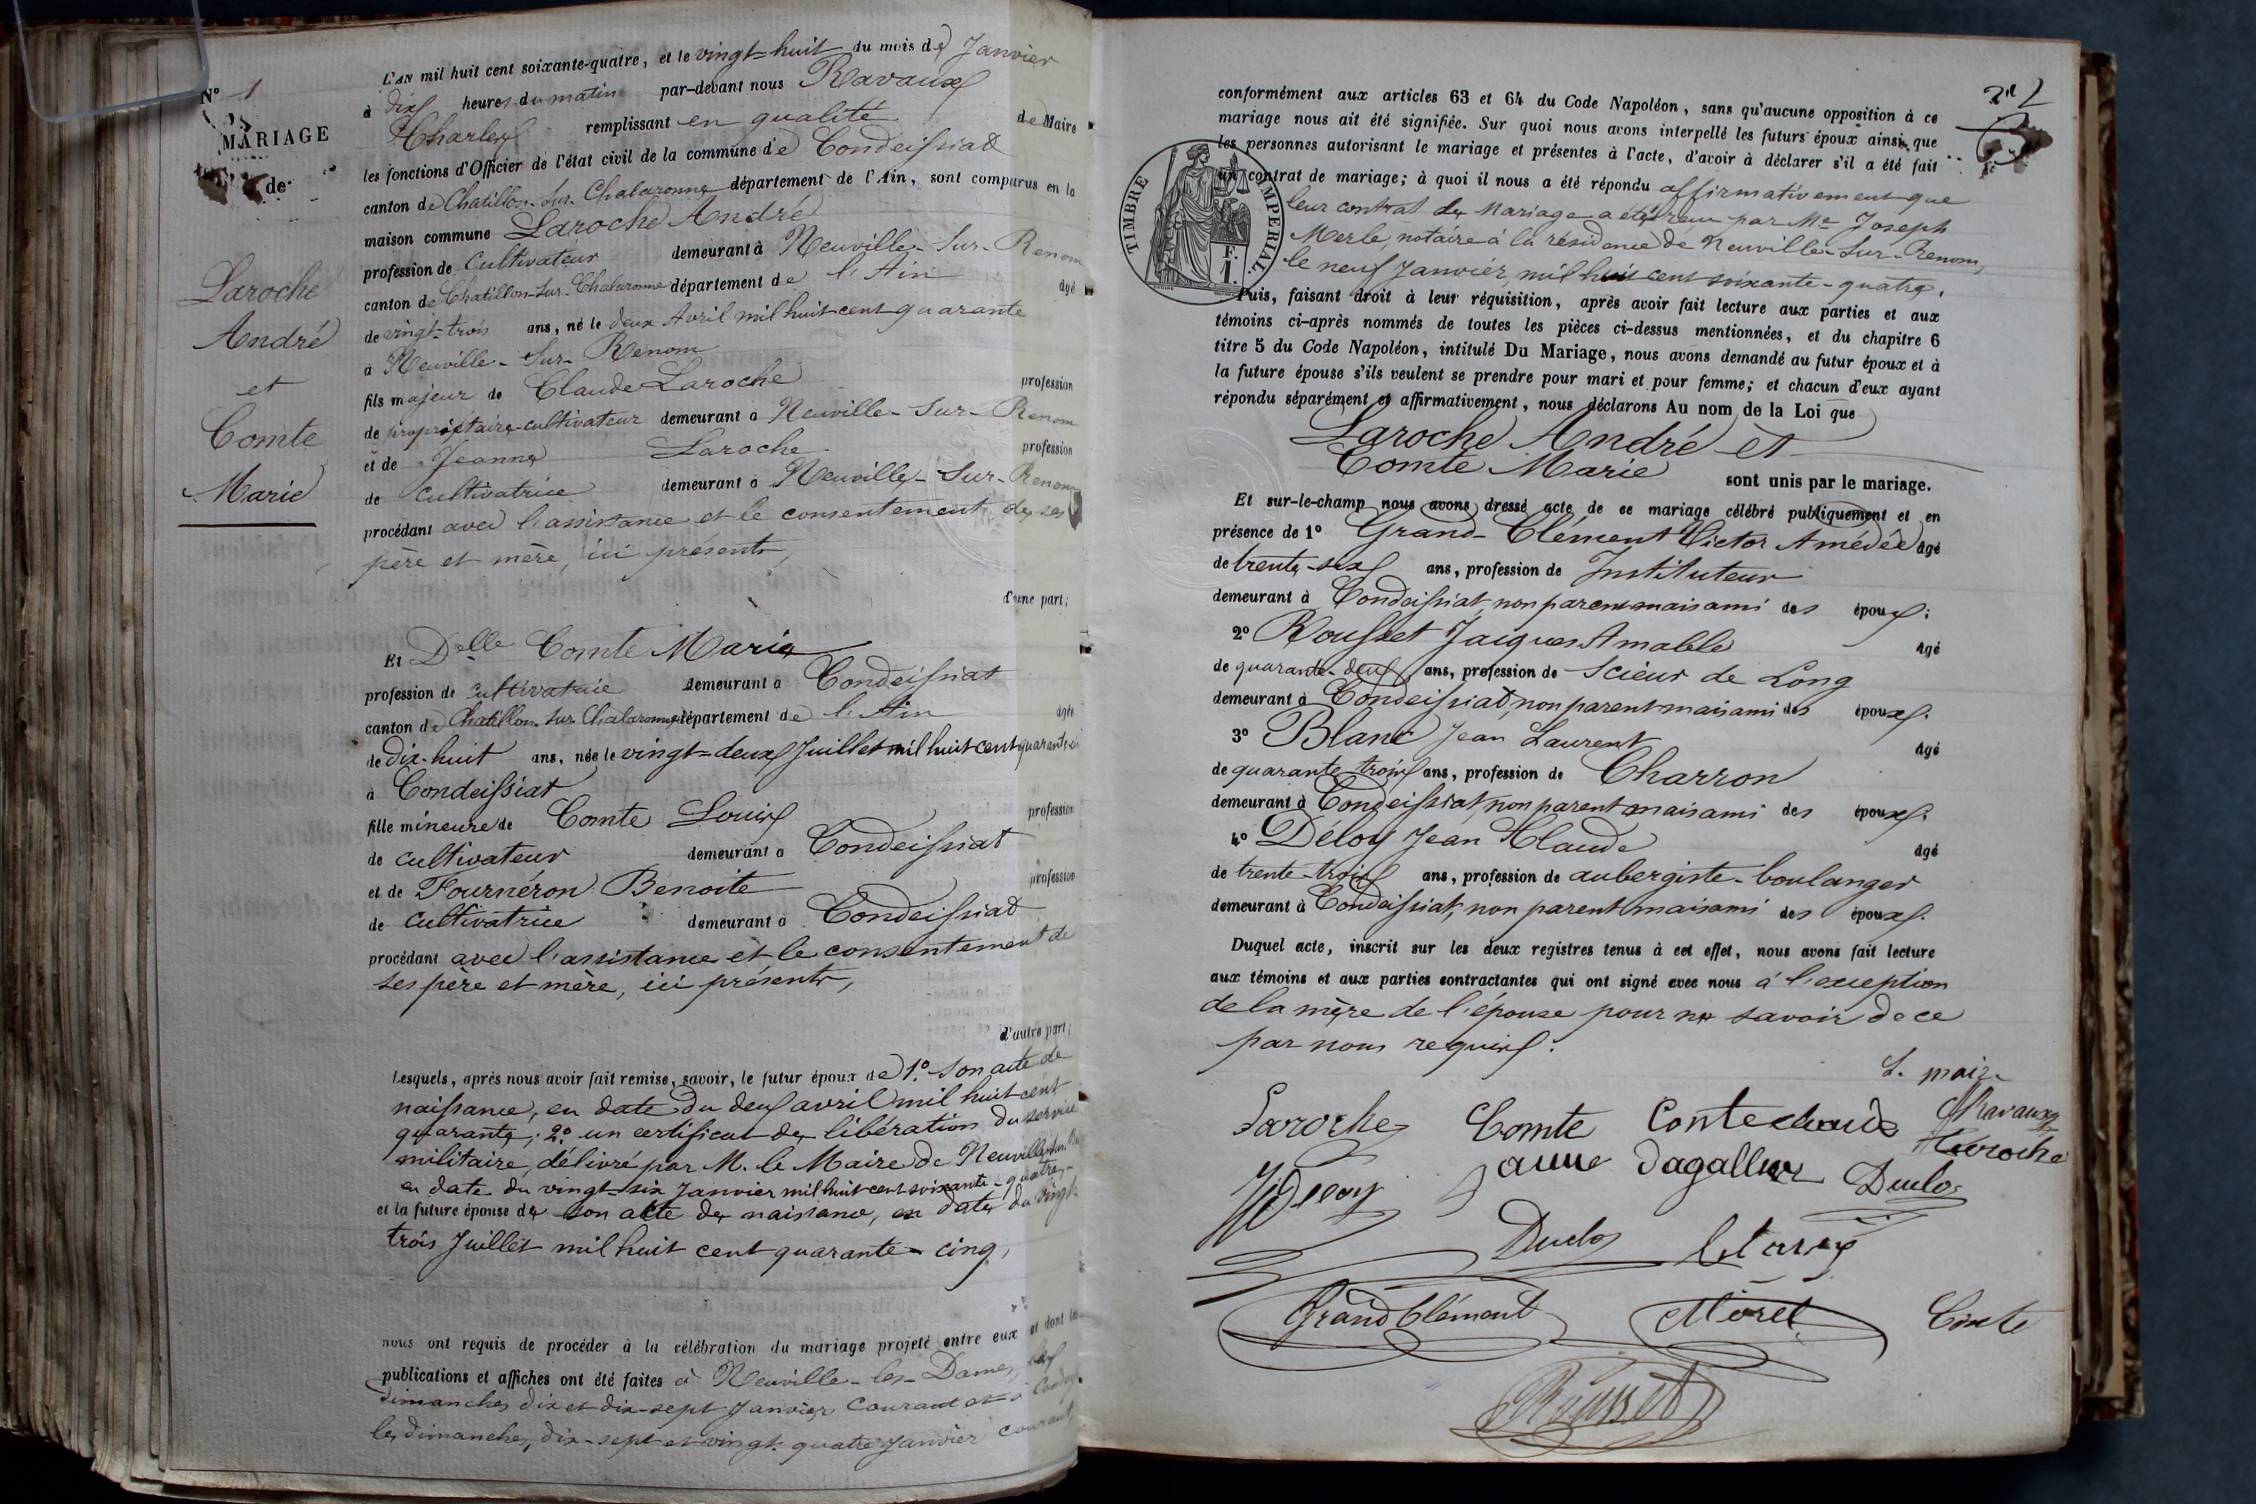 N° 1
MARIAGE
de
Laroche
André
et
Comte
Marie
L'AN mil huit cent soixante-quatre, et le vingt-huit du mois de Janvier
à dix heures du matin par-devant nous Ravaux
Charles remplissant en qualité de Maire
les fonctions d'Officier de l'état civil de la commune de Condeissiat
canton de Chatillon-sur-Chalaronne département de l'Ain, sont comparus en la
maison commune Laroche André
profession de Cultivateur demeurant à Neuville-Sur-Renom
canton de Chatillon-Sur-Chalaronne département de l'Ain âgé
de vingt-trois ans, né le deux Avril mil huit cent quarante
à Neuville-Sur-Renom
fils majeur de Claude Laroche profession
de propriétaire-cultivateur demeurant à Neuville-Sur-Renom
et de Jeanne Laroche profession
de cultivatrice demeurant à Neuville-Sur-Renom
procédant avec l'assistance et le consentement de ses
père et mère, ici présents,
d'une part;
Et Delle Comte Marie
profession de cultivatrice demeurant à Condeissiat
canton de Chatillon-sur-Chalaronne département de l'Ain âgée
de dix-huit ans, née le vingt-deux Juillet mil huit cent quarante-
à Condeissiat
fille mineure de Comte Louis profession
de cultivateur demeurant à Condeissiat
et de Fournéron Benoite profession
de cultivatrice demeurant à Condeissiat
procédant avec l'assistance et le consentement de
ses père et mère, ici présents,
d'autre part;
Lesquels, après nous avoir fait remise, savoir, le futur époux de 1.° son acte de
naissance, en date du deux avril mil huit cent
quarante; 2.° un certificat de libération du service
militaire, délivré par M. le Maire de Neuville-sur-
en date du vingt-six Janvier mil huit cent soixante-quatre,
et la future épouse de son acte de naissance, en date du vingt-
trois Juillet mil huit cent quarante-cinq,
nous ont requis de procéder à la célébration du mariage projeté entre eux et dont les
publications et affiches ont été faites à Neuville-les-Dames, les
dimanches dix et dix-sept Janvier courant et à
les dimanches, dix-sept et vingt-quatre Janvier courant
2
conformément aux articles 63 et 64 du Code Napoléon, sans qu'aucune opposition à ce
mariage nous ait été signifiée. Sur quoi nous avons interpellé les futurs époux ainsi que
les personnes autorisant le mariage et présentes à l'acte, d'avoir à déclarer s'il a été fait
un contrat de mariage; à quoi il nous a été répondu affirmativement que
leur contrat de Mariage a été reçu par Me Joseph
Merle, notaire à la résidence de Neuville-Sur-Renom,
le neuf Janvier, mil huit cent soixante-quatre.
TIMBRE IMPÉRIAL
F.
1.
Puis, faisant droit à leur réquisition, après avoir fait lecture aux parties et aux
témoins ci-après nommés de toutes les pièces ci-dessus mentionnées, et du chapitre 6
titre 5 du Code Napoléon, intitulé Du Mariage, nous avons demandé au futur époux et à
la future épouse s'ils veulent se prendre pour mari et pour femme; et chacun d'eux ayant
répondu séparément et affirmativement, nous déclarons Au nom de la Loi que
Laroche André et
Comte Marie
sont unis par le mariage.
Et sur-le-champ nous avons dressé acte de ce mariage célébré publiquement et en
présence de 1° Grand-Clément Victor Amédée âgé
de trente-six ans, profession de Instituteur
demeurant à Condeissiat, non parent mais ami des époux;
2° Rousset Jacques Amable âgé
de quarante-deux ans, profession de Scieur de Long
demeurant à Condeissiat, non parent mais ami des époux.
3° Blanc Jean Laurent âgé
de quarante-trois ans, profession de Charron
demeurant à Condeissiat, non parent mais ami des époux.
4° Déloy Jean Claude âgé
de trente-trois ans, profession de aubergiste-boulanger
demeurant à Condeissiat, non parent mais ami des époux.
Duquel acte, inscrit sur les deux registres tenus à cet effet, nous avons fait lecture
aux témoins et aux parties contractantes qui ont signé avec nous à l'exception
de la mère de l'épouse pour ne savoir de ce
par nous requis.
L. maire
Laroche Comte Comte Ravaux
Laroche
Deloy Dagallier Duclos
Duclos
Grand Clément Morel Comte
Rousset